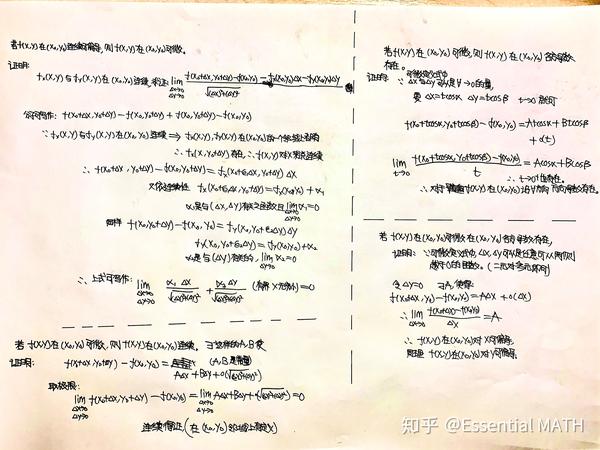 若 f(x,y) 在 (x₀,y₀) 连续可偏导, 则 f(x,y) 在 (x₀,y₀) 可微.
证明:
fₓ(x,y) 与 f_y(x,y) 在 (x₀,y₀) 连续, 求证 lim(Δx→0, Δy→0) [f(x₀+Δx,y₀+Δy)-f(x₀,y₀)-fₓ(x₀,y₀)Δx-f_y(x₀,y₀)Δy]/√((Δx)²+(Δy)²)
f(x₀+Δx,y₀+Δy)-f(x₀,y₀+Δy)+f(x₀,y₀+Δy)-f(x₀,y₀)
∵ fₓ(x,y) 与 f_y(x,y) 在 (x₀,y₀) 连续 ⇒ fₓ(x,y), f_y(x,y) 在 (x₀,y₀) 的一个邻域上
∴ fₓ(x,y₀+Δy) 存在, ∴ f(x,y) 对 x 连续
∴ f(x₀+Δx,y₀+Δy)-f(x₀,y₀+Δy)=fₓ(x₀+ε₁Δx,y₀+Δy)Δx
又依连续性 fₓ(x₀+ε₁Δx,y₀+Δy)=fₓ(x₀,y₀)+α₁
α₁是与(Δx,Δy)有关 且 lim α₁=0
同样 f(x₀,y₀+Δy)-f(x₀,y₀)=f_y(x₀,y₀+ε₂Δy)Δy
f_y(x₀,y₀+ε₂Δy)=f_y(x₀,y₀)+α₂
α₂是与(Δy)有关的, lim α₂=0
∴ 上式可写作: lim(Δx→0, Δy→0) α₁Δx/√((Δx)²+(Δy)²)+α₂Δy/√((Δx)²+(Δy)²) =0
若 f(x,y) 在 (x₀,y₀) 可微, 则 f(x,y) 在 (x₀,y₀) 连续. A,B 使
证明: f(x+Δx,y₀+Δy)-f(x₀,y₀)= (A,B是常量)
AΔx+BΔy+o(√((Δx)²+(Δy)²))
取极限:
lim(Δx→0, Δy→0) f(x₀+Δx,y₀+Δy)-f(x₀,y₀)=lim(Δx→0, Δy→0) AΔx+BΔy+o(√((Δx)²+(Δy)²))=0
连续得证, (在 (x₀,y₀) 邻域上有定义)
若 f(x,y) 在 (x₀,y₀) 可微, 则 f(x,y) 在 (x₀,y₀) 各方向导数
存在.
证明: 可微定义式中
∵ Δx与Δy 是 →0 的量,
要 Δx=tcosα Δy=tcosβ t→0 即可
f(x₀+tcosα,y₀+tcosβ)-f(x₀,y₀)=Atcosα+Btcosβ
+o(t)
lim(t→0) [f(x₀+tcosα,y₀+tcosβ)-f(x₀,y₀)]/t=Acosα+Bcosβ
∴ t→0⁺也存在.
∴ f(x,y) 在 (x₀,y₀) 沿 方向 方向导数存在.
若 f(x,y) 在 (x₀,y₀) 可微 在 (x₀,y₀) 各方向导数存在,
证明: ∵ 可微定义式中, Δx,Δy 可以是任意
趋于0的自变. (二元对多元亦可)
令 Δy=0 ∃A, 使得
f(x₀+Δx,y₀)-f(x₀,y₀)=AΔx+o(Δx)
∴ lim(Δx→0) [f(x₀+Δx,y₀)-f(x₀,y₀)]/Δx=A
∴ f(x,y) 在 (x₀,y₀) 对 x 可偏导.
同理 f(x,y) 在 (x₀,y₀) 对 y 可偏导.
知乎 @Essential MATH